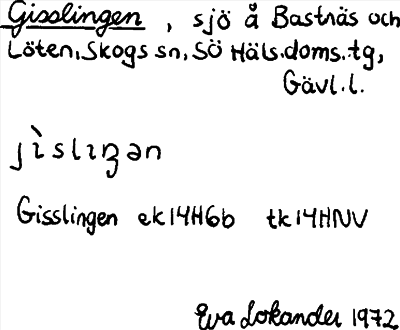 Gisslingen, sjö å Bastnäs och
Löten, Skogs sn, SÖ Häls.doms.tg,
Gävl.l.
jìsliŋən
Gisslingen ek14H6b tk14HNV
Eva Lokander 1972